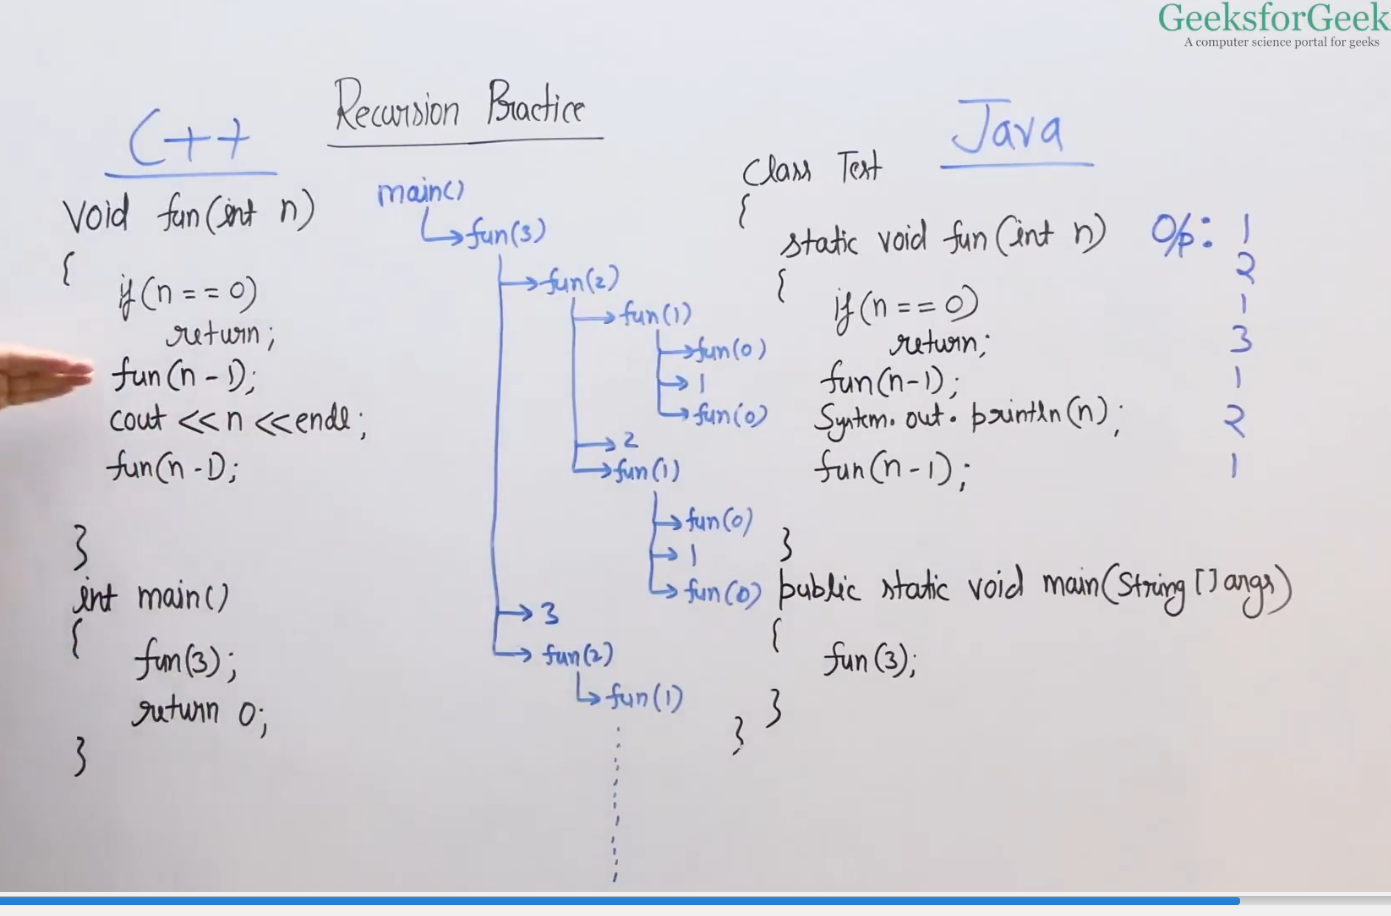 GeeksforGeek
A computer science portal for geeks
Recursion Practice
C++
void fun(int n)
{
if(n==0)
return;
fun(n-1);
cout<<n<<endl;
fun(n-1);
}
int main()
{
fun(3);
return 0;
}
main()
fun(3)
fun(2)
fun(1)
fun(0)
1
fun(0)
2
fun(1)
fun(0)
1
fun(0)
3
fun(2)
fun(1)
Java
class Test
{
static void fun(int n)
{
if(n==0)
return;
fun(n-1);
System.out.println(n);
fun(n-1);
}
public static void main(String[]args)
{
fun(3);
}
}
O/p: 1
2
1
3
1
2
1